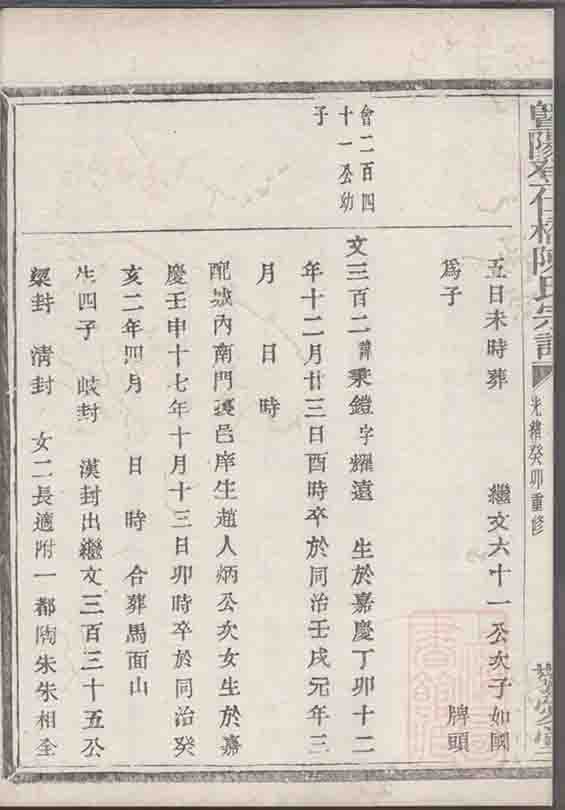 暨陽孝仁橋陳氏宗譜
光緒癸卯重修
五日未時葬　繼文六十一公次子如國
爲子　牌頭
會二百四
十一公幼
子
文三百二諱秉鐙字耀遠　生於嘉慶丁卯十二
年十二月廿三日酉時卒於同治壬戌元年三
月　日　時
配城內南門裏邑庠生趙人炳公次女生於嘉
慶壬申十七年十月十三日卯時卒於同治癸
亥二年四月　日　時　合葬馬面山
生四子　岐封　漢封出繼文三百三十五公
梁封　清封　女二長適附一都陶朱朱相全